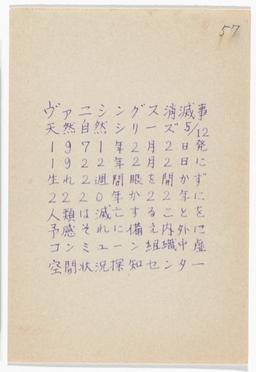 57
ヴァニシングス消滅事
天然自然シリーズ5/12
1971年2月2日発
1922年2月2日に
生れ2週間眼を開かず
2220年か22年に
人類は滅亡することを
予感それに備え内外に
コンミューン組織中虚
空間状況探知センター